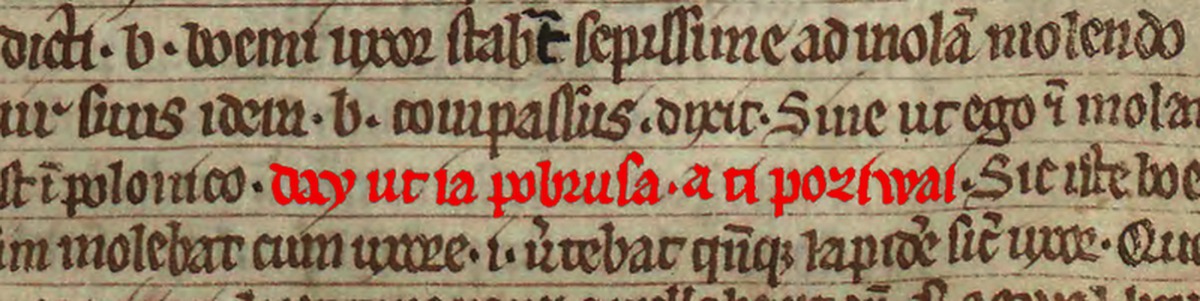 dicti · b · boemi uxor stabat sepissime ad molā molendo
uir suus idem · b · compassus · dixit · Sine ut ego ī mola
st ī polonico · day ut ia pobrusa · a ti poziwai · Sic iste bo
im molebat cum uxore · i · ůtebat qn̄q; lapidē sic̄ uxor · Qu